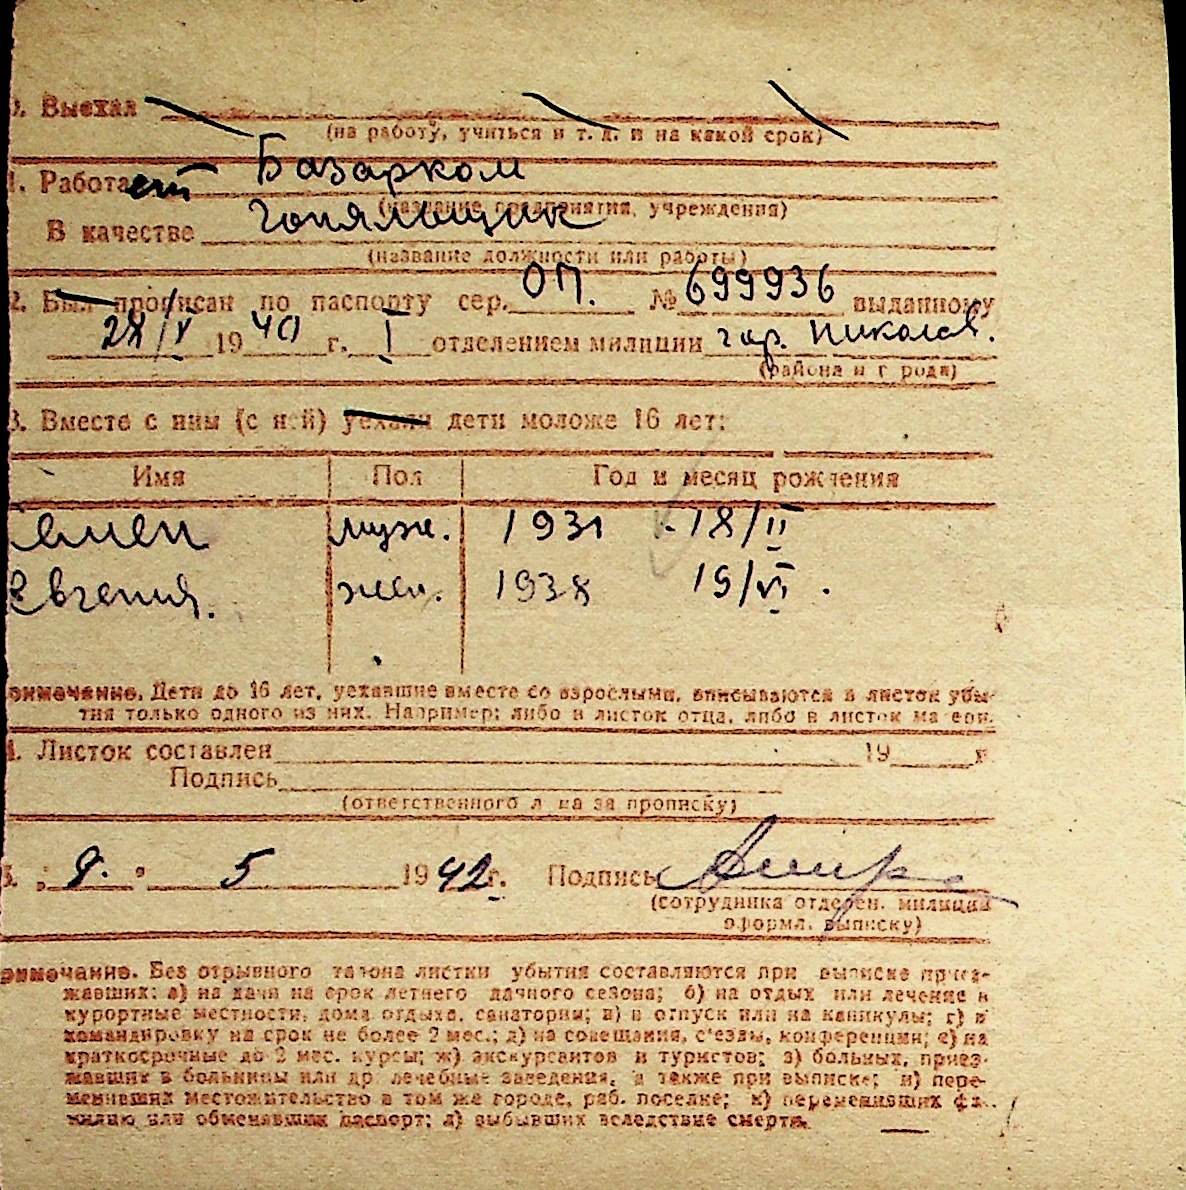 0. Выехал
(на работу, учиться и т. д. и на какой срок)
1. Работает Базарком
(название предприятия, учреждения)
В качестве
(название должности или работы)
2. Был прописан по паспорту сер. ОП. № 699936 выданному
28/V 1940 г. I отделением милиции гор. Николаев.
(района и города)
3. Вместе с ним (с ней) уехали дети моложе 16 лет:
Имя Пол Год и месяц рождения
муж. 1931 18/II
Евгения. жен. 1938 19/VI.
римечание. Дети до 16 лет, уехавшие вместе со взрослыми, вписываются в листок убы-
тия только одного из них. Например: либо в листок отца, либо в листок матери.
4. Листок составлен 19 г.
Подпись
(ответственного лица за прописку)
5. 8. 5 1942 г. Подпись
(сотрудника отделен. милиции
оформл. выписку)
римечание. Без отрывного талона листки убытия составляются при выписке приез-
жавших: а) на дачи на срок летнего дачного сезона; б) на отдых или лечение в
курортные местности, дома отдыха, санатории; в) в отпуск или на каникулы; г) в
командировку на срок не более 2 мес.; д) на совещания, с'езды, конференции; е) на
краткосрочные до 2 мес. курсы; ж) экскурсантов и туристов; з) больных, приез-
жавших в больницы или др. лечебные заведения, а также при выписке; и) пере-
менивших местожительство в том же городе, раб. поселке; к) переменивших фа-
милию или обменявших паспорт; л) выбывших вследствие смерти.